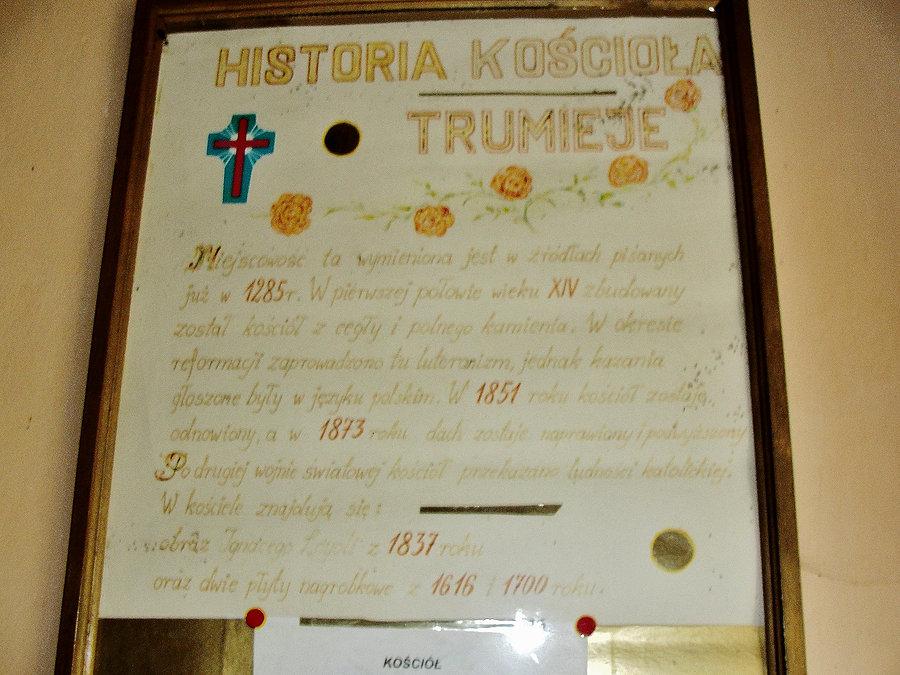 HISTORIA KOŚCIOŁA
TRUMIEJE
Miejscowość ta wymieniona jest w źródłach pisanych
już w 1285 r. W pierwszej połowie wieku XIV zbudowany
został kościół z cegły i polnego kamienia. W okresie
reformacji zaprowadzono tu luteranizm, jednak kazania
głoszone były w języku polskim. W 1851 roku kościół zostaje
odnowiony, a w 1873 roku dach zostaje naprawiony i podwyższony
Po drugiej wojnie światowej kościół przekazano ludności katolickiej.
W kościele znajdują się:
obraz Ignacego z 1837 roku
oraz dwie płyty nagrobkowe z 1616 i 1700 roku.
KOŚCIÓŁ